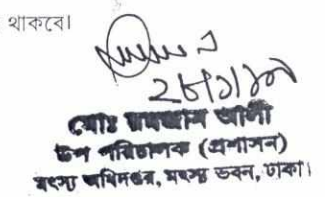 থাকবে।
মোঃ রমজান আলী
উপ পরিচালক (প্রশাসন)
মৎস্য অধিদপ্তর, মৎস্য ভবন, ঢাকা।